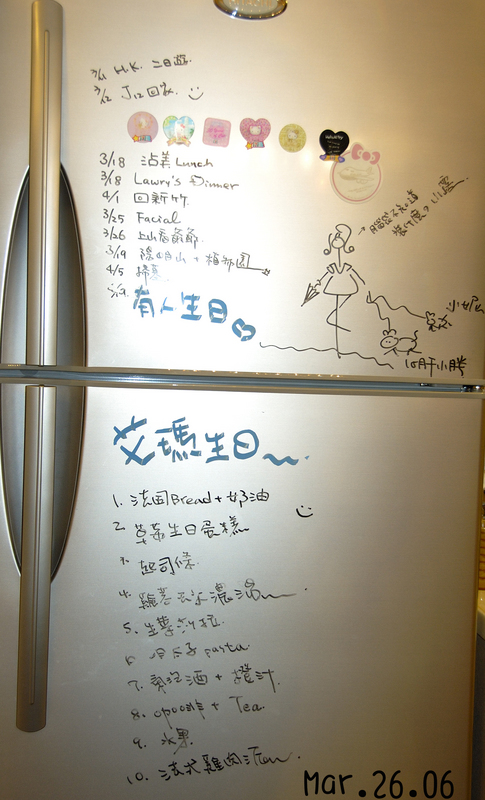 3/11 H.K. 二日遊.
3/12 J12 回家.
3/18 沾美 Lunch
3/18 Lawry's Dinner
4/1 回新竹
3/25 Facial
3/26 上山看爺爺.
3/19 陽明山 + 植物園
4/5 掃墓
有人生日
腦袋不知道
小妮
艾瑪生日
1. 法国Bread + 奶油
2. 草莓生日蛋糕
3. 起司條
4. 濃湯
5. 生菜沙拉
6. pasta
7. 氣泡酒 + 橙汁.
8. + Tea.
9. 水果
10. 法式雞肉
Mar.26.06